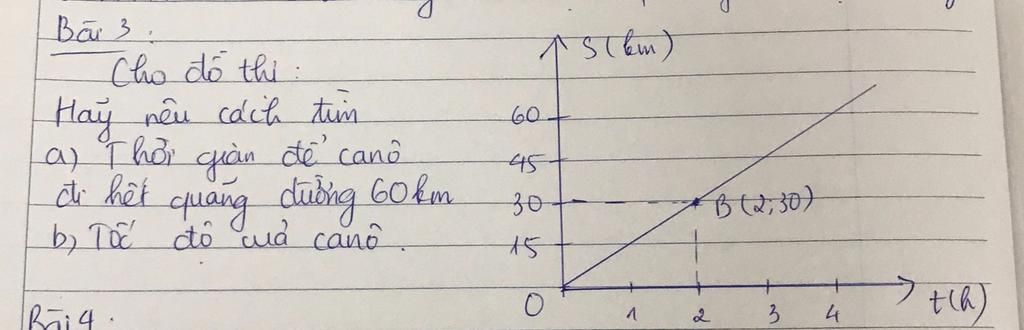 Bài 3 :
Cho đồ thị :
Hãy nêu cách tìm
a) Thời gian để canô
đi hết quãng đường 60km
b) Tốc độ cuả canô .
S (km)
60
45
30
B (2;30)
15
0
1 2 3 4
t(h)
Bài 4 .